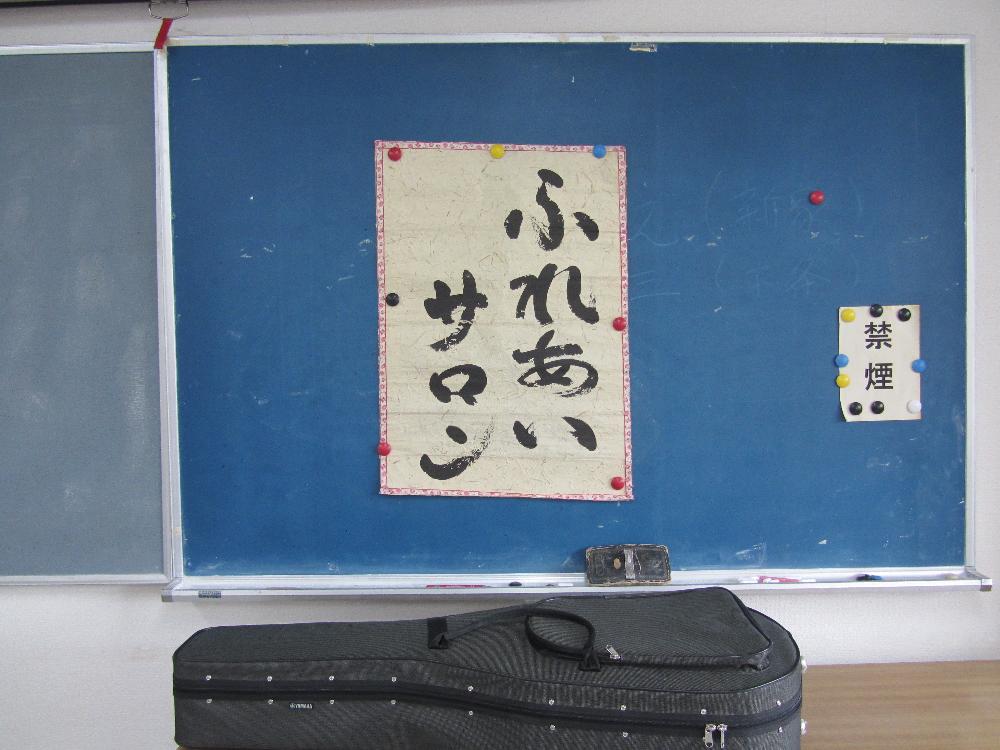 ふれあい
サロン
禁煙
YAMAHA